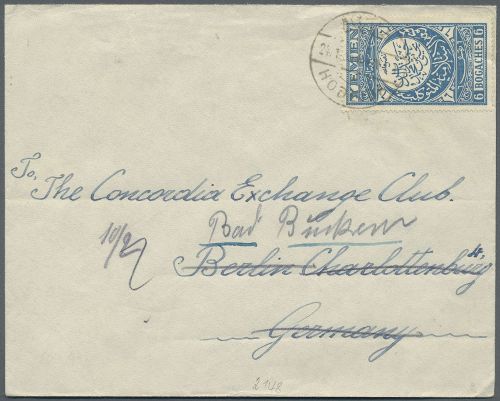 YEMEN
6 BOGACHES 6
To,
The Concordia Exchange Club.
Bad
Berlin Charlottenburg
Germany
2148